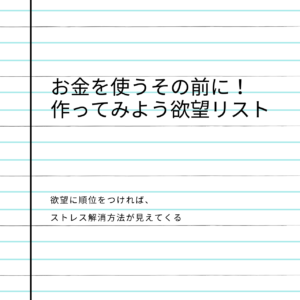 お金を使うその前に！
作ってみよう欲望リスト
欲望に順位をつければ、
ストレス解消方法が見えてくる